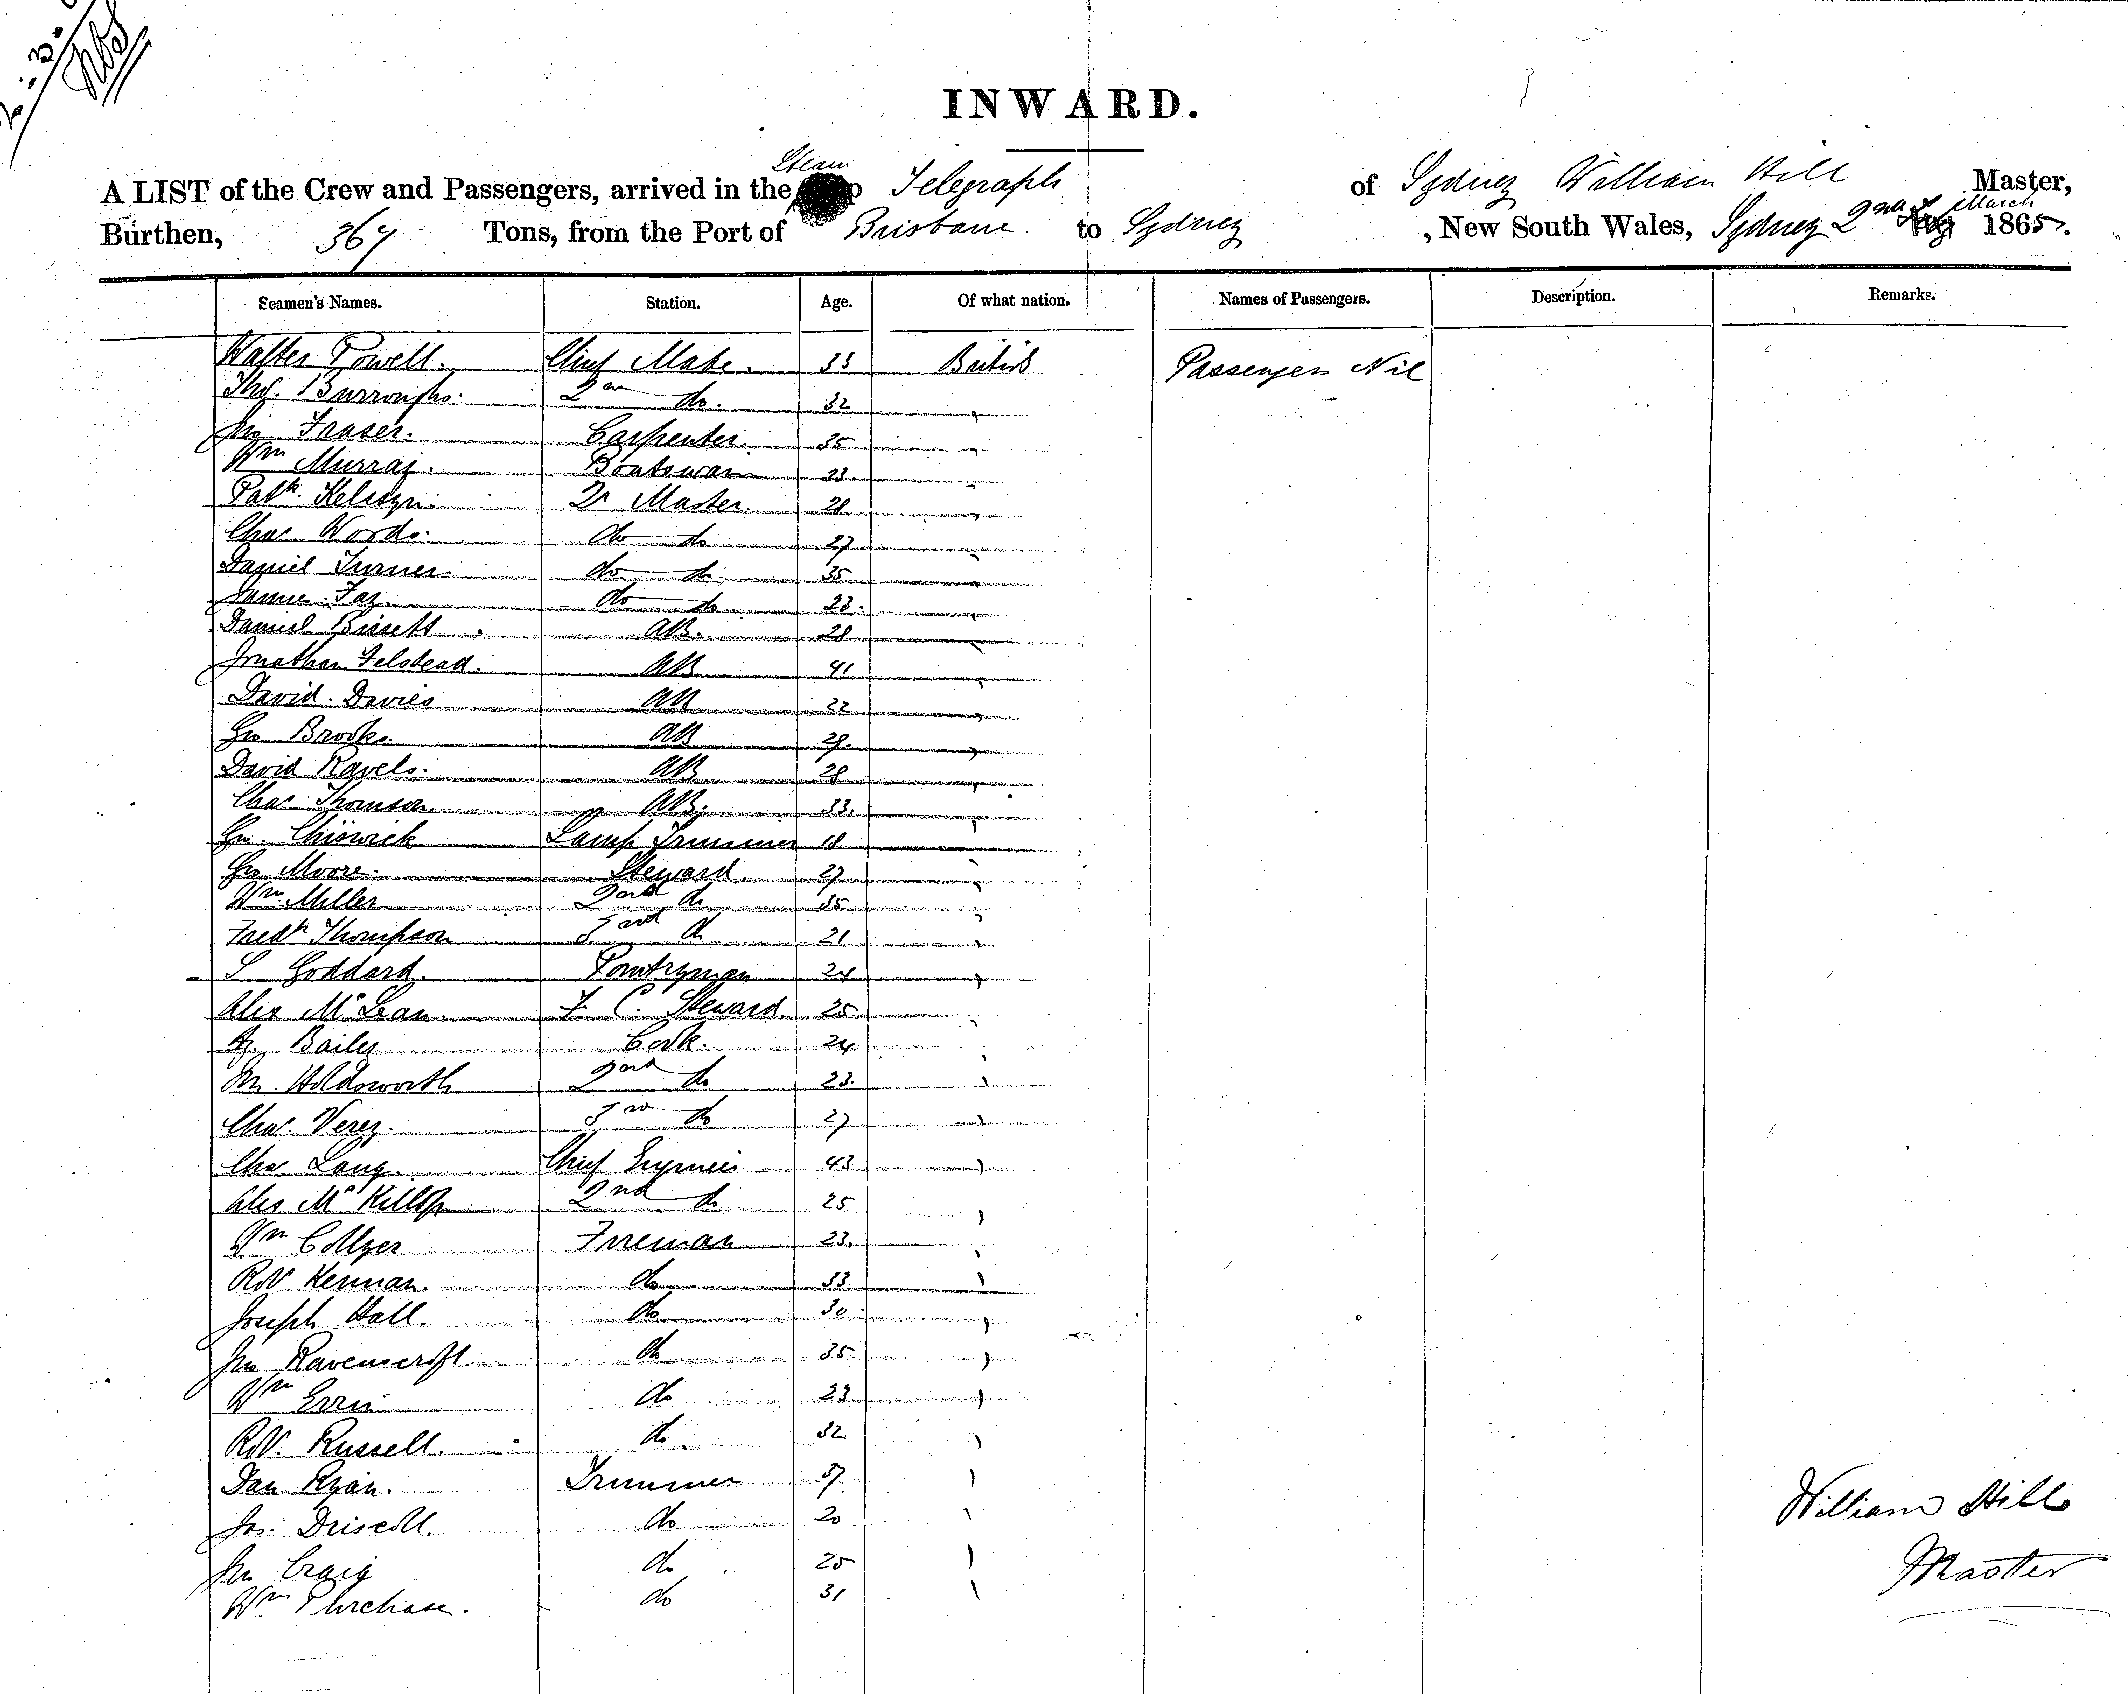 INWARD.
A LIST of the Crew and Passengers, arrived in the Steam Telegraph of Sydney William Hill Master,
Burthen, 367 Tons, from the Port of Brisbane. to Sydney , New South Wales, Sydney 2nd March 1865.
Seamen's Names. Station. Age. Of what nation. Names of Passengers. Description. Remarks.
Walter Powell. Chief Mate. 33 British Passengers Nil
Thos. Burroughs. 2nd do. 32 "
Jno Fraser. Carpenter. 35 "
Wm Murray. Boatswain 23. "
Patk. Qr Master. 28 "
Chas Woods. do do 27 "
Daniel Turner do do 35 "
James Fay. do do 23. "
Daniel Bissett. AB. 28 "
Jonathan Felstead. AB 41 "
David Davies AB 22 "
Geo Brooks. AB 29. "
David Ravels. AB 28 "
Chas Thomson AB. 33. "
Geo. Chiswick Lamp Trimmer 18 "
Geo Moore. Steward. 27 "
Wm Miller 2nd do 35 "
Fredk Thompson 3rd do 21 "
S Goddard. Pantryman 24 "
Alex McLean F. C. Steward 25 "
Bailey Cook. 24 "
Jno. Holdsworth 2nd do 23. "
Chas. Verey. 3rd do 27 "
Chas Lang. Chief Engineer 43 "
Alex McKillop 2nd do 25 "
Wm Collyer Fireman 23. "
Robt Kennan. do 33 "
Joseph Hall. do 30 "
Jno Ravenscroft do 35 "
Wm do 23 "
Robt. Russell. do 32 "
Dan Ryan. Trimmer 37 "
Jas. Driscoll. do 20 "
Jno Craig do 25 "
Wm Purchase. do 31 "
William Hill
Master